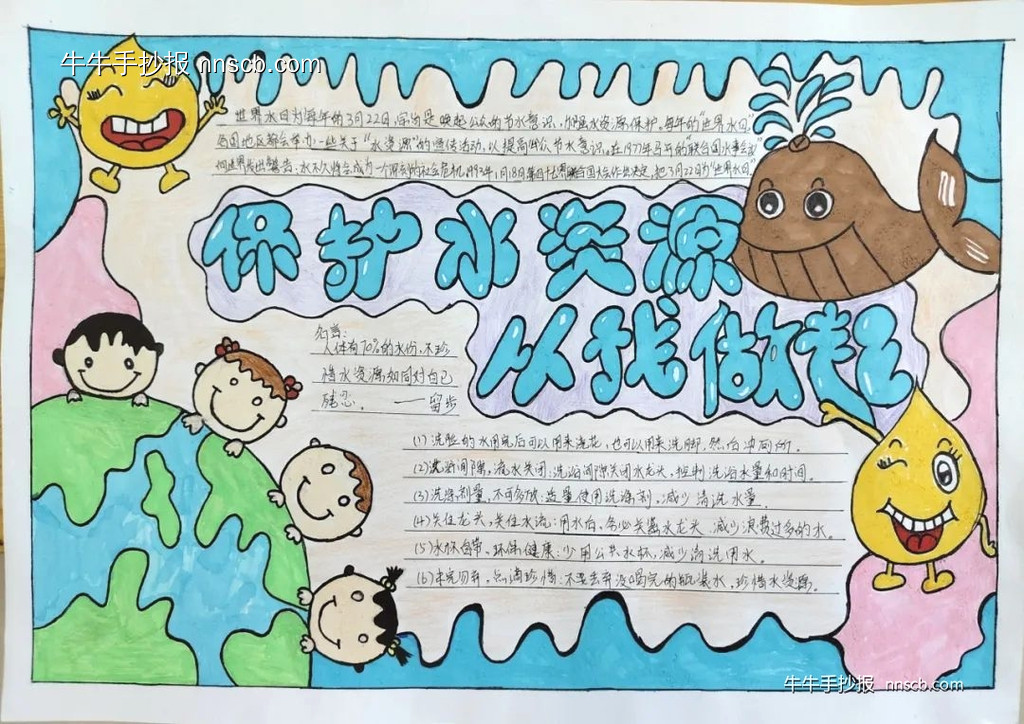 牛牛手抄报 nnscb.com
世界水日为每年的3月22日,宗旨是唤起公众的节水意识,加强水资源保护。每年的"世界水日"
各国地区都会举办一些关于"水资源"的宣传活动,以提高公众节水意识,在1977年召开的"联合国水事会议"
向世界发出警告:水不久将会成为一个深刻的社会危机,1993年1月18日第四十七届联合国大会作出决定,把3月22日为"世界水日"。
保护水资源
从我做起
名言:
人体有70%的水份,不珍
惜水资源如同对自己
残忍。——留步
(1)洗脸的水用完后可以用来浇花,也可以用来洗脚,然后冲厕所。
(2)洗浴间隙,流水关闭:洗浴间隙关闭水龙头,控制洗浴水量和时间。
(3)洗涤剂量,不可多放:适量使用洗涤剂,减少清洗水量
(4)关住龙头,关住水流:用水后,务必关紧水龙头,减少浪费过多的水。
(5)水杯自带,环保健康:少用公共水杯,减少清洗用水。
(6)未完勿弃,点滴珍惜:不要丢弃没喝完的瓶装水,珍惜水资源。
牛牛手抄报 nnscb.com